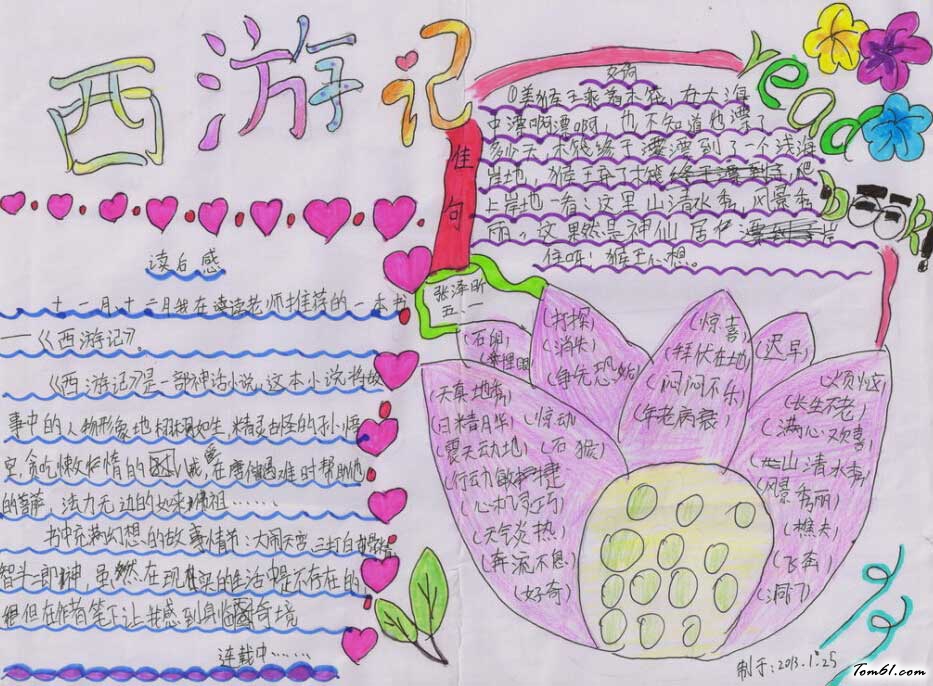 西游记
read
book!
佳句
好词
①美猴王乘着木筏,在大海
中漂啊漂啊,也不知道也漂了
多少天,木筏终于漂漂到了一个浅海
岸地,猴王弃了木筏,爬
上岸地一看:这里山清水秀,风景秀
丽。这果然是神仙居住
住呀!猴王心想。
张泽昕
五、一
读后感
十一月、十二月我在读读老师推荐的一本书
——《西游记》。
《西游记》是一部神话小说,这本小说将故
事中的人物形象地栩栩如生,精灵古怪的孙小悟
空,贪吃懒惰的八戒,在唐僧遇难时帮助他
的菩萨,法力无边的如来佛祖……
书中充满幻想的故事情节:大闹天宫、三打白骨精
智斗二郎神,虽然在现实的生活中是不存在的
但在作者笔下让我感到身临奇境
连载中……
(石卵)
(打探)
(消失)
(争先恐后)
(惊喜)
(拜伏在地)
(闷闷不乐)
(年老病衰)
(迟早)
(烦恼)
(长生不老)
(满心欢喜)
(山清水秀)
(风景秀丽)
(樵夫)
(洞门)
(天真地秀)
(日精月华)(惊动)
(震天动地)(石猴)
(行动敏捷)
(心机灵巧)
(天气炎热)
(奔流不息)
(好奇)
制于:2013.1.25
Tom61.com